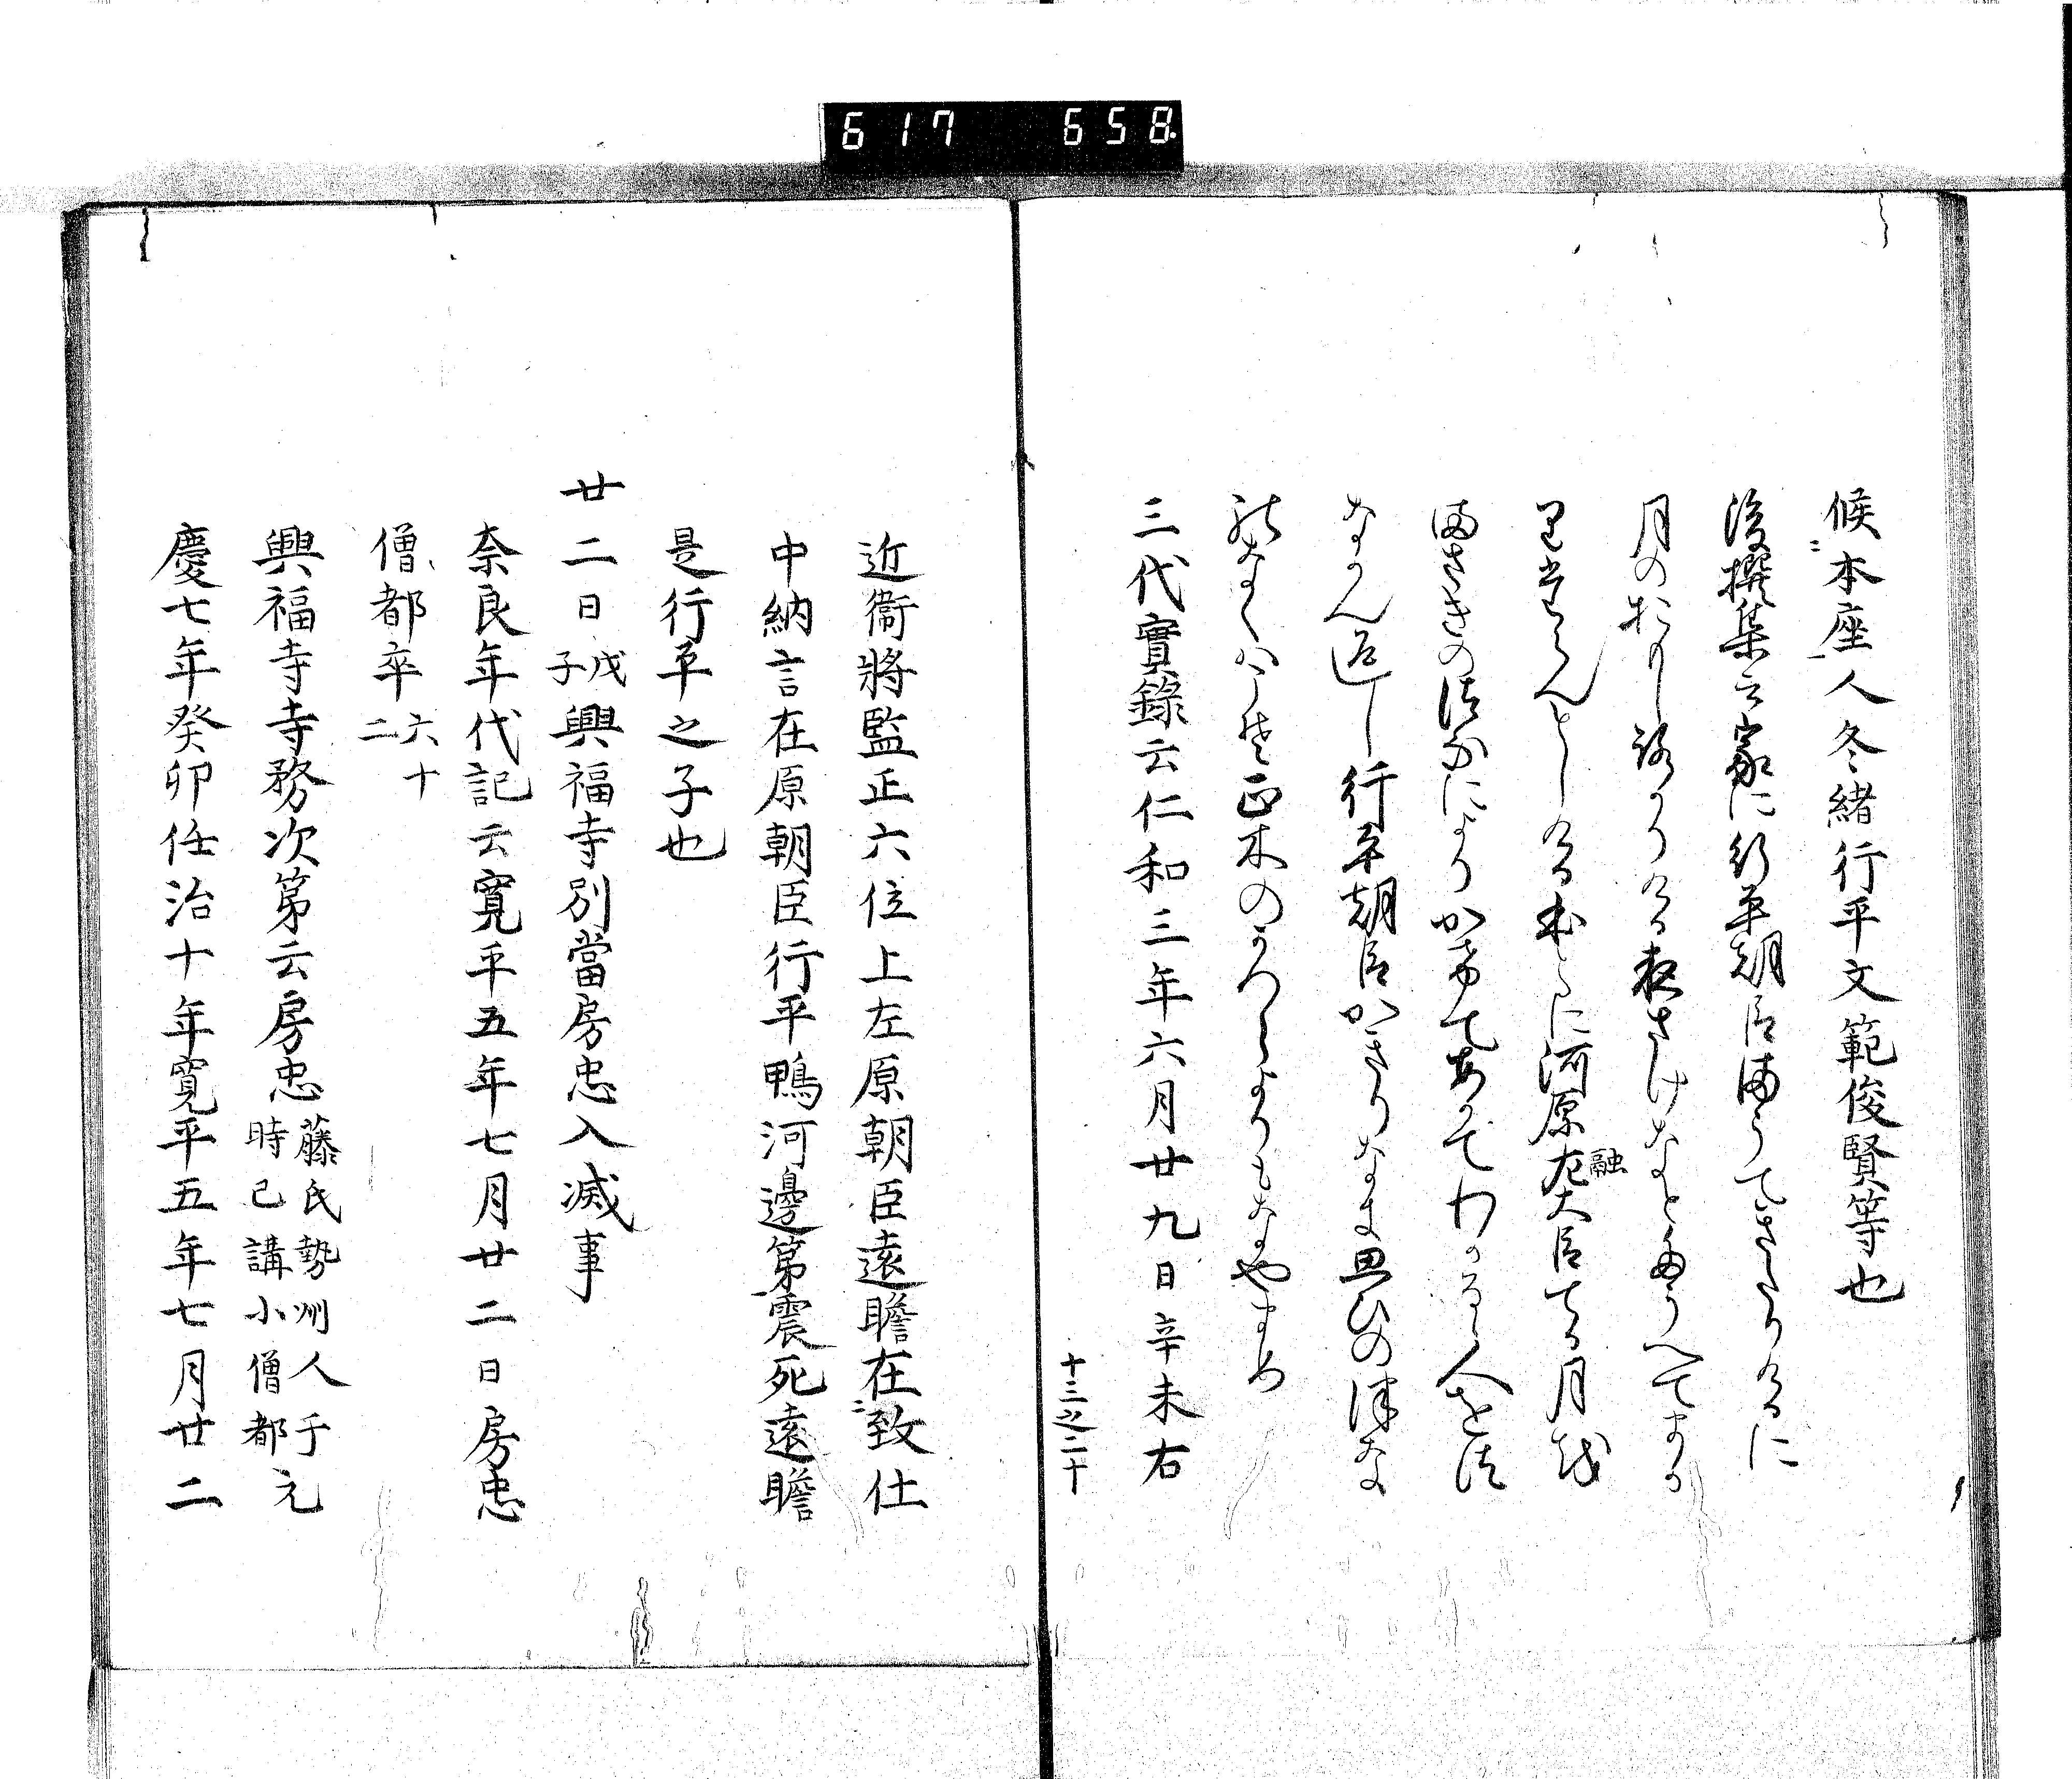 617 658
候本座人冬緒行平文範俊賢等也
後撰集云家に行平朝臣まうてきたりけるに
月のおもしろかりける夜さけなとたうへてまか
りたゝんとしけるほとに河原左大臣融てる月を
まさきのつなによりかけてあかすわかるゝ人をつ
なかん返し行平朝臣かきりなき思ひのつな
のなくはこそ正木のかつらよりもなやまめ
三代實錄云仁和三年六月廿九日辛未右
十三之二十
近衞將監正六位上左原朝臣遠瞻在致仕
中納言在原朝臣行平鴨河邊第震死遠瞻
是行平之子也
廿二日戊子興福寺別當房忠入滅事
奈良年代記云寛平五年七月廿二日房忠
僧都卒六十二
興福寺寺務次第云房忠藤氏勢州人于時已講小僧都元
慶七年癸卯任治十年寛平五年七月廿二